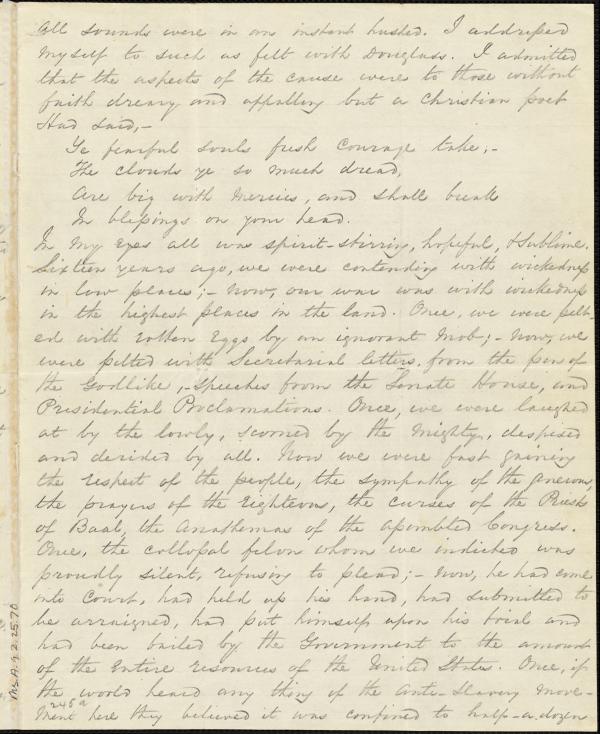 All sounds were in an instant hushed. I addressed
myself to such as felt with Douglass. I admitted
that the aspects of the cause were to those without
faith dreary and appalling but a Christian poet
Had said,-
Ye fearful souls fresh courage take,-
The clouds ye so much dread,
Are big with mercies, and shall break
In blessings on your head.
In my Eyes all was spirit-stirring, hopeful, & sublime.
Sixteen years ago, we were contending with wickedness
in low places;- Now, our war was with wickedness
in the highest places in the land. Once, we were pelt-
ed with rotten Eggs by an ignorant Mob;- Now, we
were pelted with Secretarial letters, from the pen of
the Godlike,- speeches from the Senate House, and
Presidential Proclamations. Once, we were laughed
at by the lowly, scorned by the Mighty, despised
and derided by all. Now we were fast gaining
the respect of the people, the sympathy of the generous,
the prayers of the righteous, the curses of the Priests
of Baal, the anathemas of the assembled Congress.
Once, the collossal felon whom we indicted was
proudly silent, refusing to plead;- Now, he had come
into Court, had held up his hand, had submitted to
be arraigned, had put himself upon his trial and
had been bailed by the Government to the amount
of the Entire resources of the United States. Once, if
the world heard any thing of the Anti-Slavery move-
ment here they believed it was confined to half-a-dozen
Ms.A.9.2.25.70